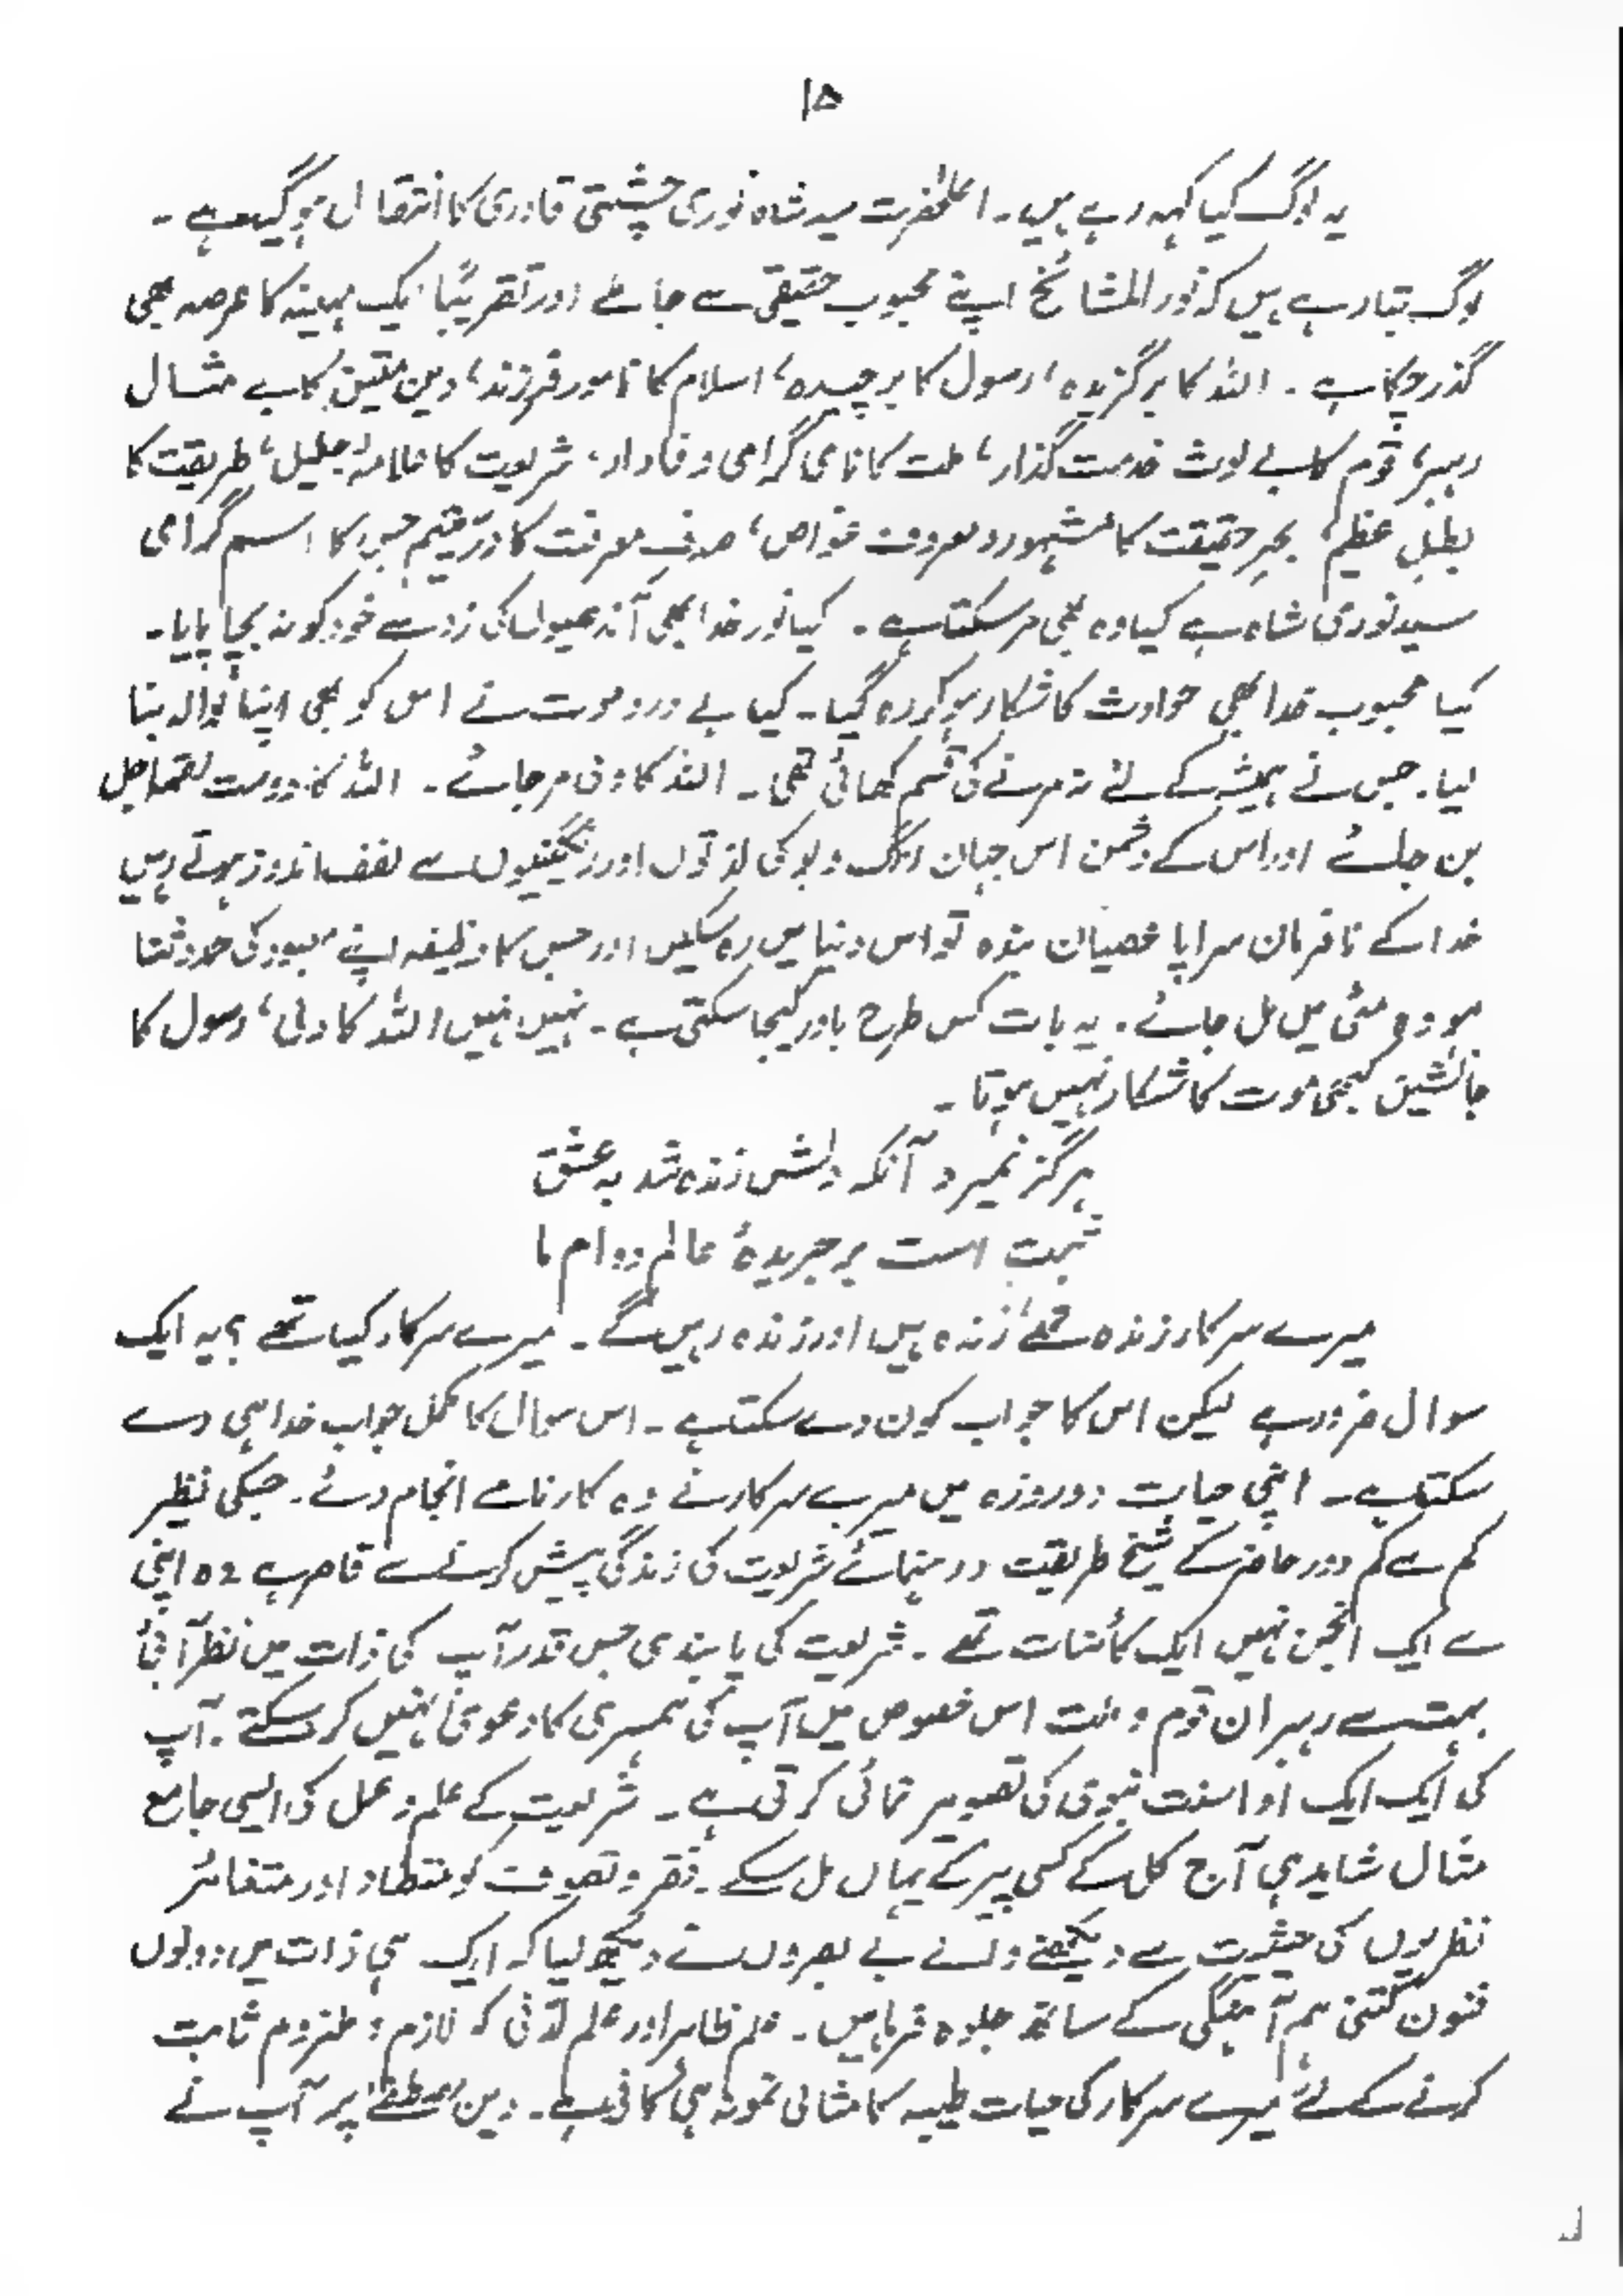 ۱۵
یہ لوگ کیا کہہ رہے ہیں۔ اعلحضرت سید شاہ نوری چشتی قادری کا انتقال ہو گیا ہے۔
لوگ بتا رہے ہیں کہ نور المشائخ اپنے محبوب حقیقی سے جا ملے اور تقریبًا ایک مہینہ کا عرصہ بھی
گذر چکا ہے۔ اللہ کا برگزیدہ، رسول کا برچیدہ، اسلام کا نامور فرزند، دین متین کا بے مثال
رہبر، قوم کا بے لوث خدمت گذار، ملت کا نامی گرامی وفادار، شریعت کا علامۂ جلیل، طریقت کا
بطلِ عظیم، بحرِ حقیقت کا مشہور و معروف غواص، صدفِ معرفت کا درِّ یتیم جس کا اسم گرامی
سید نوری شاہ ہے کیا وہ بھی مر سکتا ہے۔ کیا نور خدا بھی آندھیوں کی زد سے خود کو نہ بچا پایا۔
کیا محبوب خدا بھی حوادث کا شکار ہو کر رہ گیا۔ کیا بے درد موت نے اس کو بھی اپنا نوالہ بنا
لیا۔ جس نے ہمیشہ کے لئے نہ مرنے کی قسم کھائی تھی۔ اللہ کا ولی مر جائے۔ اللہ کا دوست لقمۂ اجل
بن جائے اور اس کے دشمن اس جہان رنگ و بو کی لذتوں اور رنگینیوں سے لطف اندوز ہوتے رہیں
خدا کے نافرمان سراپا عصیان بندہ تو اس دنیا میں رہ سکیں اور جس کا وظیفہ اپنے معبود کی حمد و ثنا
ہو وہ مٹی میں مل جائے۔ یہ بات کس طرح باور کیجا سکتی ہے۔ نہیں نہیں اللہ کا ولی، رسول کا
جانشین کبھی موت کا شکار نہیں ہوتا۔
ہرگز نمیرد آنکہ دلش زندہ شد بہ عشق
ثبت است بر جریدۂ عالم دوام ما
میرے سرکار زندہ تھے، زندہ ہیں اور زندہ رہیں گے۔ میرے سرکار کیا تھے؟ یہ ایک
سوال ضرور ہے لیکن اس کا جواب کون دے سکتا ہے۔ اس سوال کا مکمل جواب خدا ہی دے
سکتا ہے۔ اپنی حیات دو روزہ میں میرے سرکار نے وہ کارنامے انجام دئے۔ جسکی نظیر
کم سے کم دور حاضر کے شیخ طریقت و رہنمائے شریعت کی زندگی پیش کرنے سے قاصر ہے وہ اپنی
سے ایک انجمن نہیں ایک کائنات تھے۔ شریعت کی پابندی جس قدر آپ کی ذات میں نظر آئی
بہت سے رہبران قوم و ملت اس خصوص میں آپ کی ہمسری کا دعویٰ نہیں کر سکتے۔ آپ
کی ایک ایک ادا سنت نبوی کی تصویر نمائی کرتی ہے۔ شریعت کے علم و عمل کی ایسی جامع
مثال شاید ہی آج کل کے کسی پیر کے یہاں مل سکے۔ فقر و تصوف کو متضاد اور متغائر
نظریوں کی حیثیت سے دیکھنے والے بے بصروں نے دیکھ لیا کہ ایک ہی ذات میں دونوں
فنون کتنی ہم آہنگی کے ساتھ جلوہ فرما ہیں۔ علم ظاہر اور علم لدنی کو لازم و ملزوم ثابت
کرنے کے لئے میرے سرکار کی حیات طیبہ کا مثالی نمونہ ہی کافی ہے۔ دین مصطفےٰ پر آپ نے